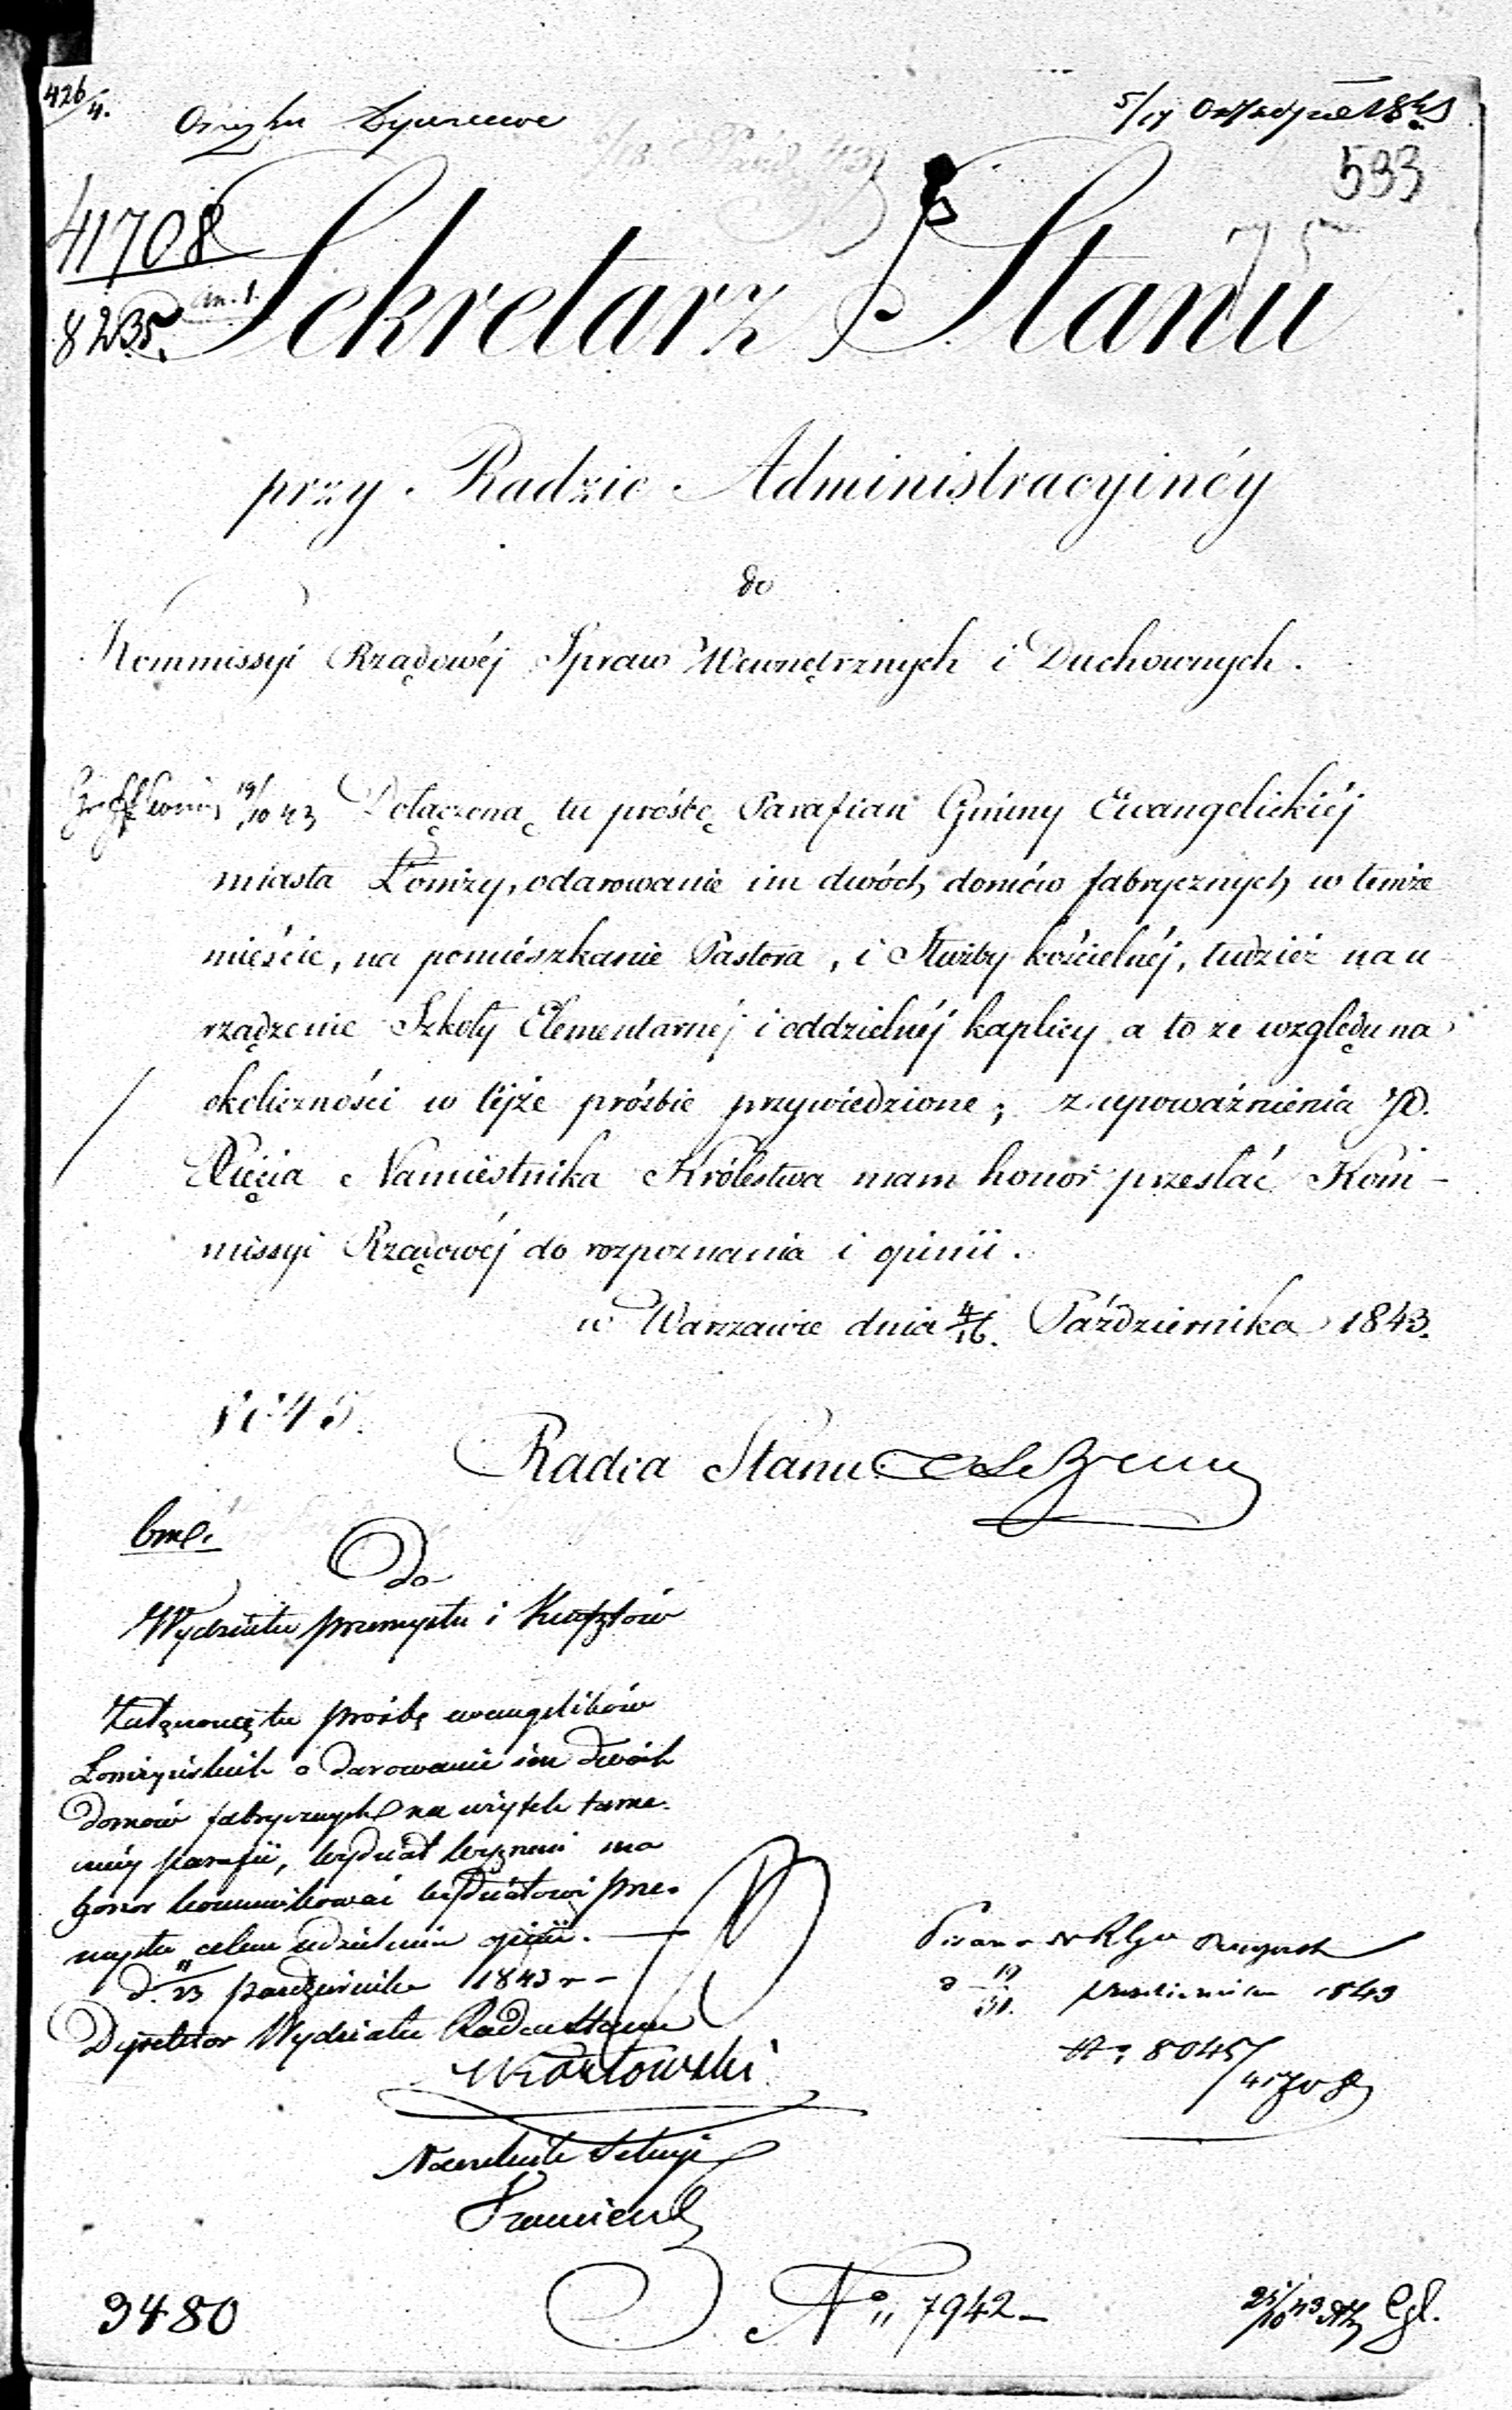 426/4.
5/17
593
41708
8235.
Sekretarz Stanu
przy Radzie Administracyinéy
do
Kommissyi Rządowéj Spraw Wewnętrznych i Duchownych.
19/10 43 Dołączoną tu prośbę Parafian Gminy Ewangelickiéj
miasta Łomży, o darowanie im dwóch domów fabrycznych w temże
mieście, na pomieszkanie Pastora, i Służby kościelnéj, tudzież na u
rządzenie Szkoły Elementarnéj i oddzielnéj kaplicy a to ze względu na
okoliczności w téjże prośbie przywiedzione; z upoważnienia JO.
Xięcia Namiestnika Królestwa mam honor przesłać Kom-
missyi Rządowéj do rozpoznania i opinii.
w Warszawie dnia 4/16. Października 1843.
Radca Stanu
Do
Wydziału przemysłu i Kunsztów
Załączoną tu prośbę ewangelików
Łomżyńskich o darowanie im dwóch
domów fabrycznych na użytek tame.
cznéj parafii, Wydział Wyznań ma
honor kommunikować Wydziałowi prze.
mysłu celem udzielenia opinii.
d. 11/23 października 1843 r
Dyrektor Wydziału Radca Stanu
Naczelnik Sekcyi
19/31. października 1843
No 8045/41708
3480
No 7942
25/10 43